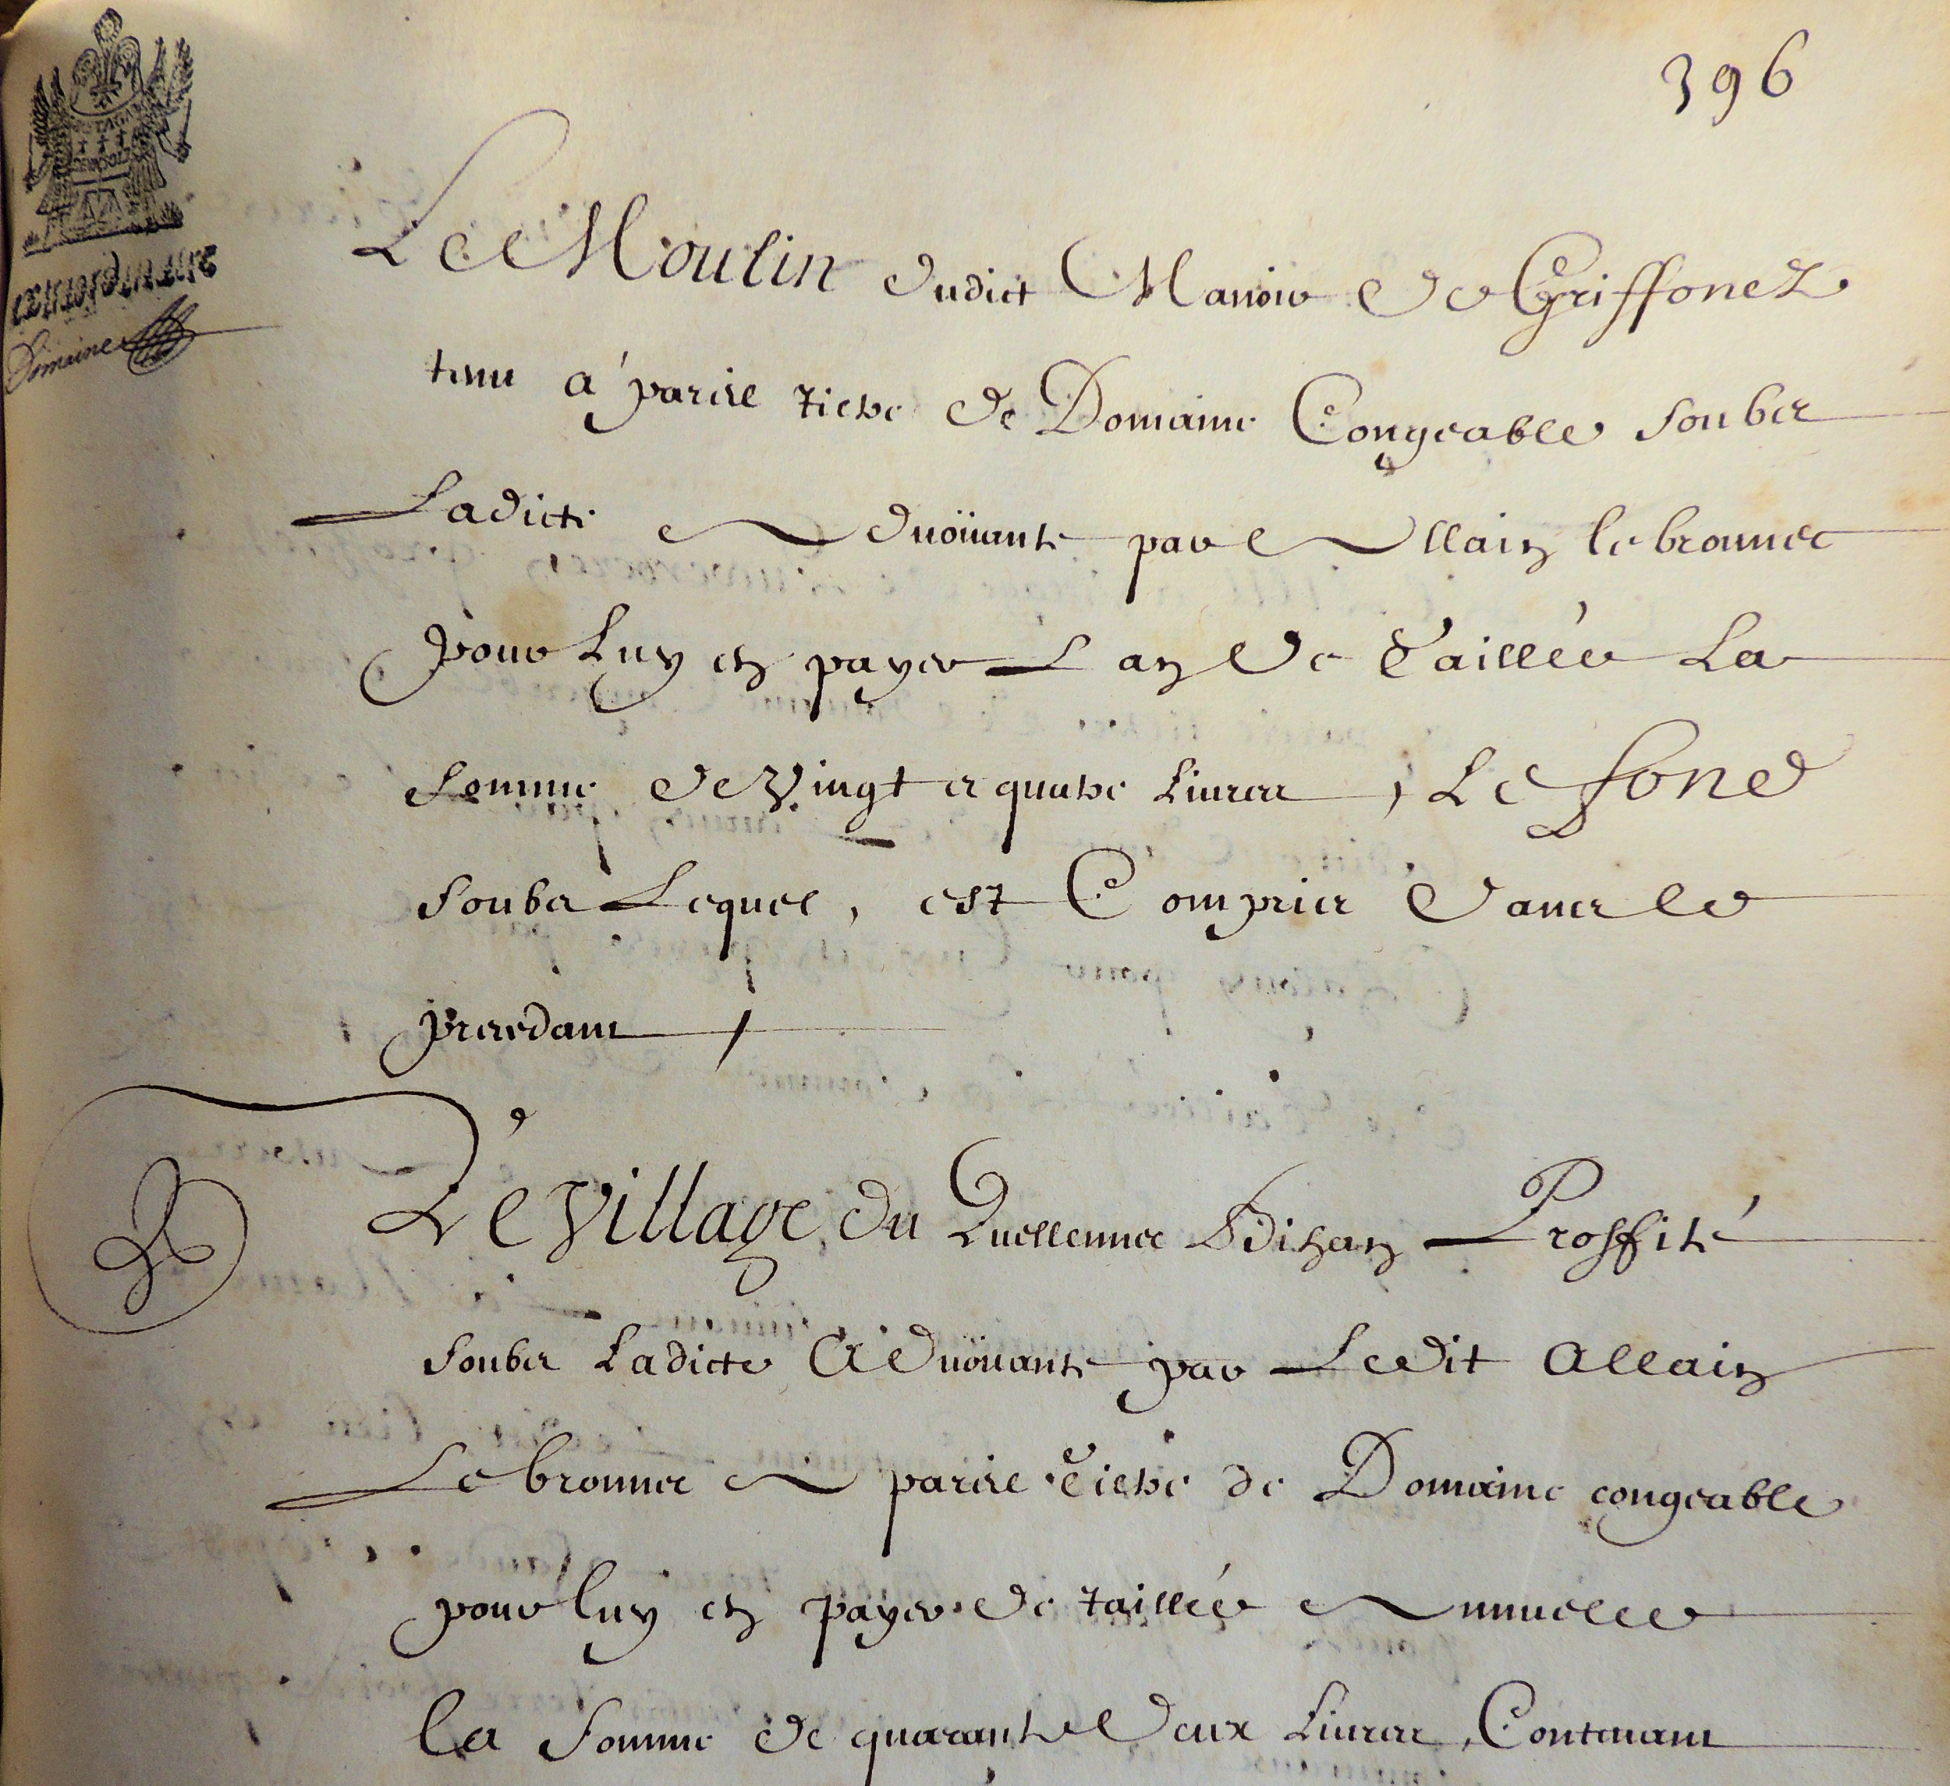 396
extraordinaire
Domaine
Le Moulin dudict Manoir de Griffonez
tenu a pareil tiltre de Domaine Congeable soubz
Ladicte Advoüante par Allain le bronnec
pour Luy en payer L an de Taillée La
somme de Vingt et quatre Livres, Le fond
soubz Lequel, est Compris Dans le
precedant
Le Village du Quellennec Bihan Proffité
soubz Ladicte Advoüante par Ledit Allain
Le bronnec a pareil Tiltre de Domaine congeable
pour luy en payer de taillée Annuelle
la somme de quarante Deux Livres, Contenant